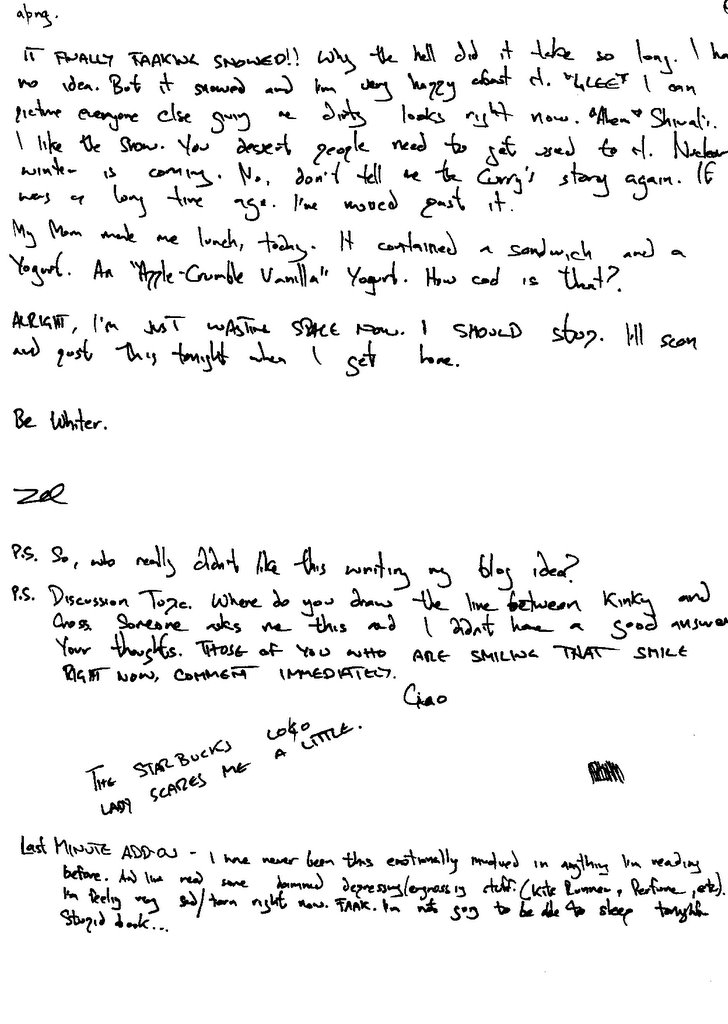 along.
IT FINALLY FAAKING SNOWED!! Why the hell did it take so long. I ha
no idea. But it snowed and I'm very happy about it. *GLEE* I can
picture everyone else giving me dirty looks right now. *Ahem* Shivali.
I like the snow. You desert people need to get used to it. Nuclear
winter is coming. No, don't tell me the Curry's story again. It
was a long time ago. I've moved past it.
My Mom made me lunch, today. It contained a sandwich and a
Yogurt. An "Apple-Crumble Vanilla" Yogurt. How cool is that?
ALRIGHT, I'M JUST WASTING SPACE NOW. I SHOULD stop. I'll scan
and post this tonight when I get home.
Be Whiter.
P.S. So, who really didn't like this writing my blog idea?
P.S. Discussion Topic. Where do you draw the line between Kinky and
Gross. Someone asks me this and I didn't have a good answer
Your thoughts. THOSE OF YOU WHO ARE SMILING THAT SMILE
RIGHT NOW, COMMENT IMMEDIATELY.
Ciao
THE STARBUCKS LOGO
LADY SCARES ME A LITTLE.
Last MINUTE ADD-ON - I have never been this emotionally involved in anything I'm reading
before. And I've read some damned depressing/engrossing stuff. (Kite Runner, Perfume, etc).
I'm feeling very sad/torn right now. FAAK. I'm not going to be able to sleep tonight.
Stupid book...